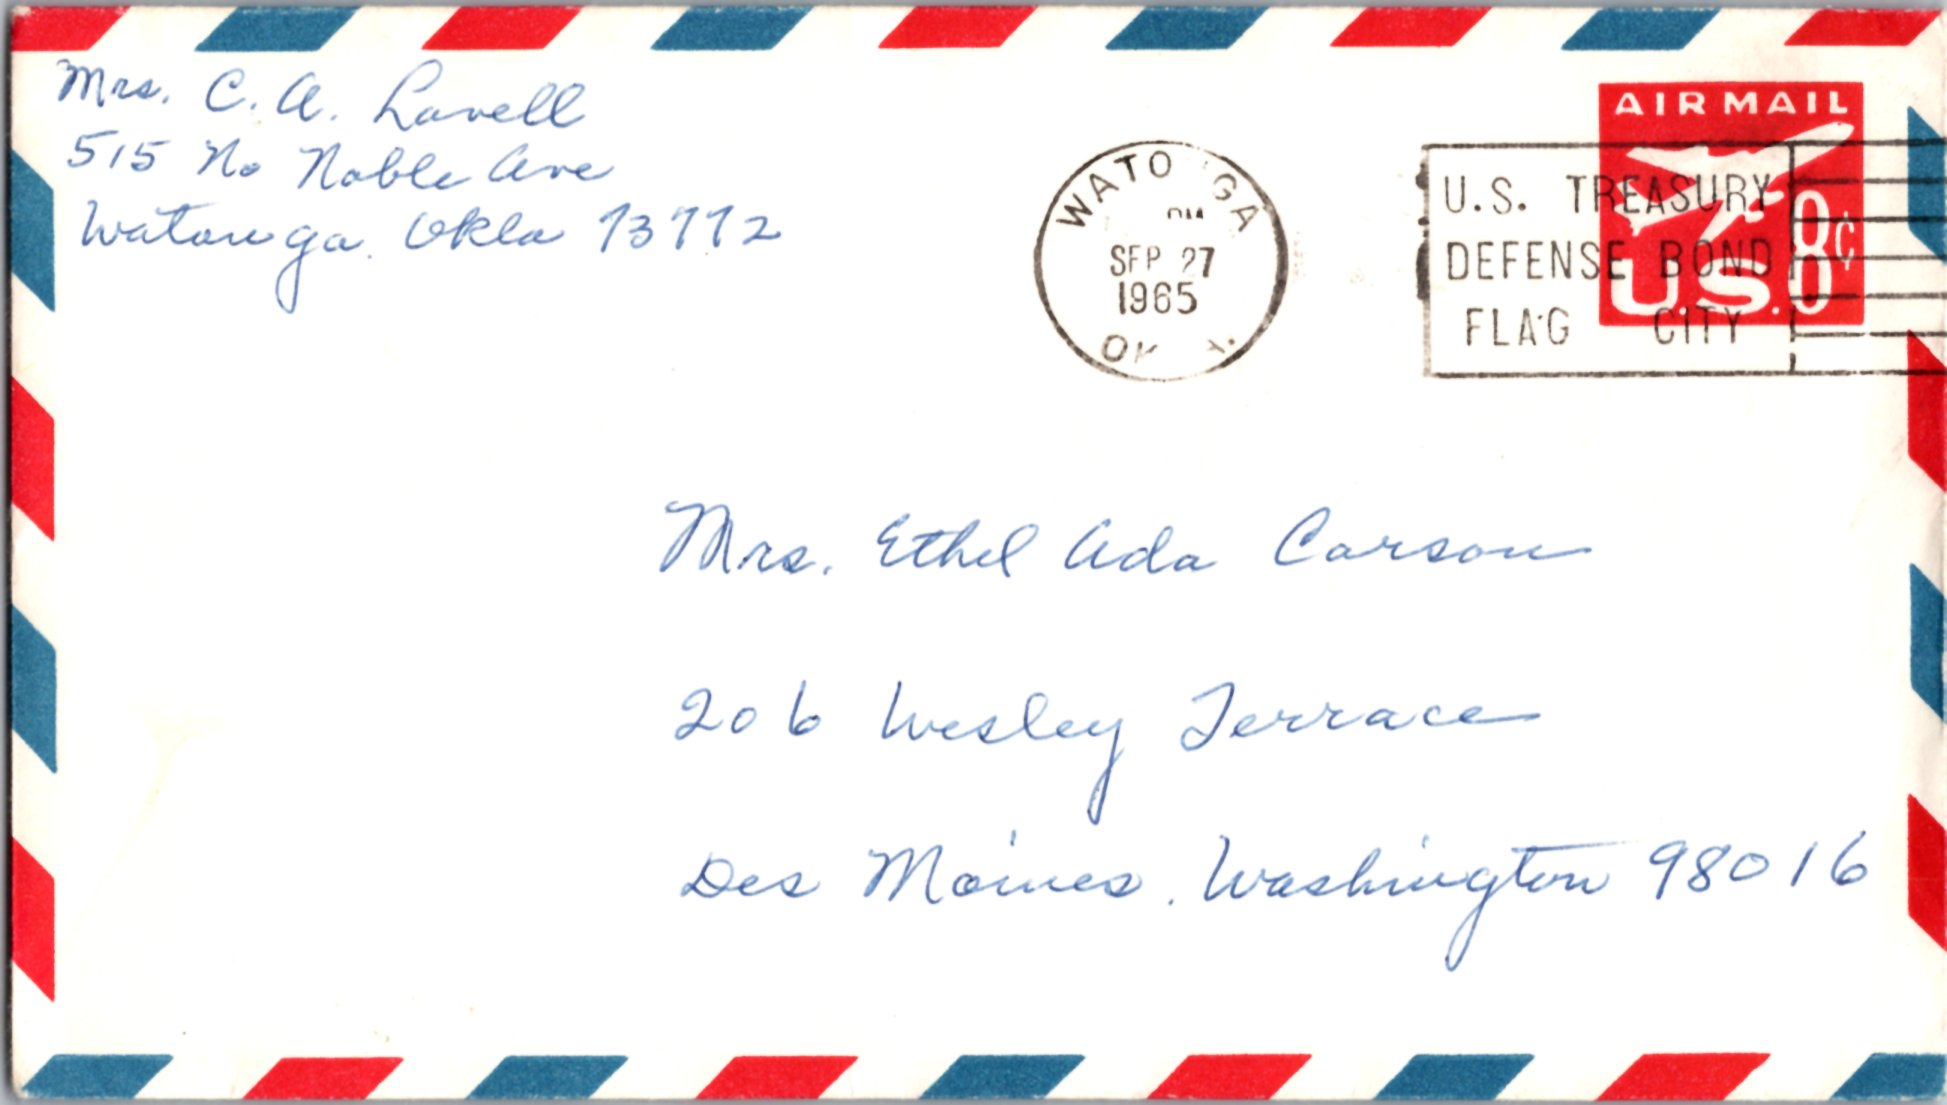 Mrs. C. A. Lavell
515 No Noble Ave
Watonga. Okla 73772
AIR MAIL
8¢
U.S.
WATO GA
PM
SEP 27
1965
OK A.
U.S. TREASURY
DEFENSE BOND
FLAG CITY
Mrs. Ethel Ada Carson
206 Wesley Terrace
Des Moines. Washington 98016